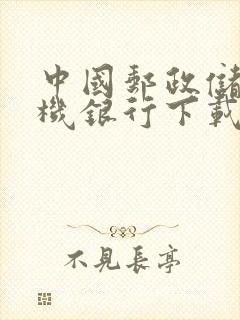 中國郵政儲
機銀行下載
不見長亭